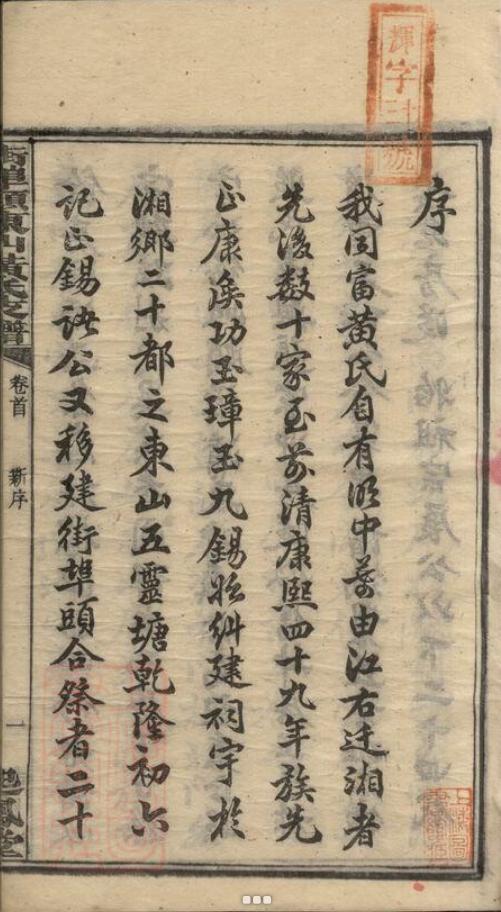 輝字廿號
序
我同富黃氏自有明中葉由江右迁湘者
先後数十家至前清康熙四十九年族先
正康渙功玉璋玉九錫糾建祠宇於
湘鄉二十都之東山五靈塘乾隆初六
記正錫公又移建街埠頭合祭者二十
街埠頭東山黃氏支譜
卷首
新序
一
鳳堂